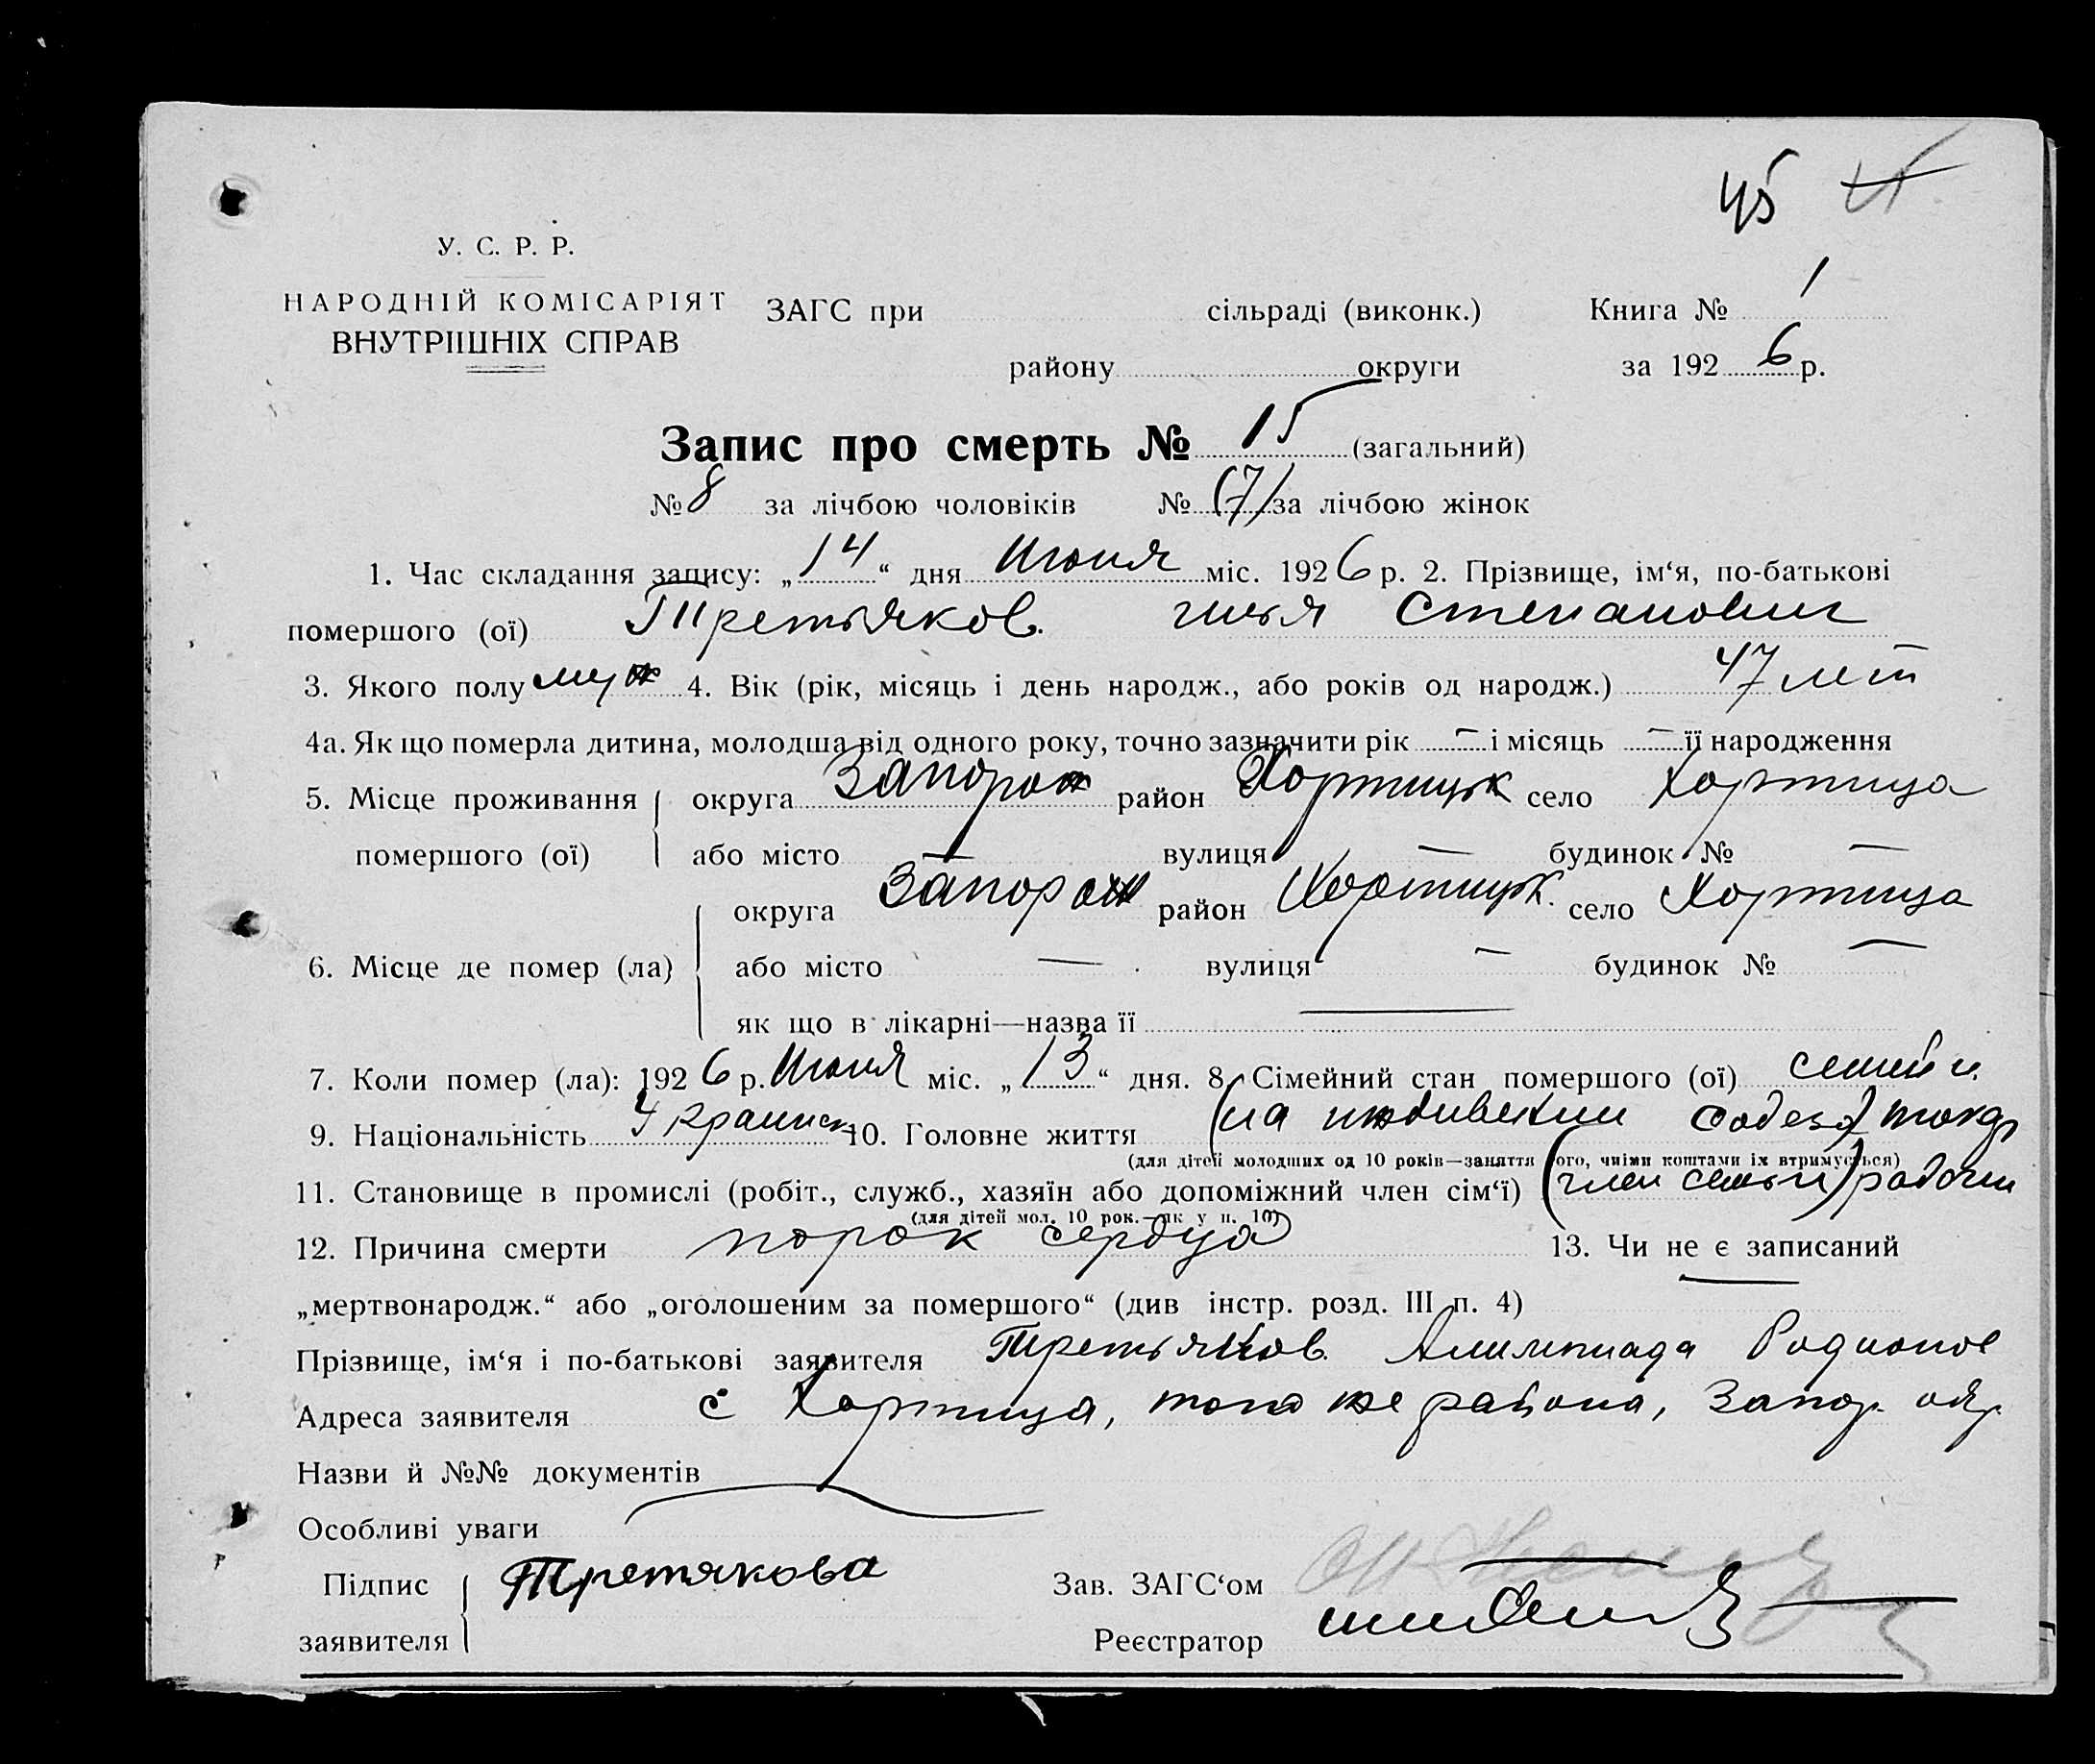 45
У. С. Р. Р.
НАРОДНІЙ КОМІСАРІЯТ
ВНУТРІШНІХ СПРАВ
ЗАГС при сільраді (виконк.) Книга № 1
району округи за 192 6 р.
Запис про смерть № 15 (загальний)
№ 8 за лічбою чоловіків № (7) за лічбою жінок
1. Час складання запису: „ 14 “ дня Июня міс. 192 6 р. 2. Прізвище, ім‘я, по-батькові
помершого (ої) Третьяков. Илья Степанович
3. Якого полу муж 4. Вік (рік, місяць і день народж., або років од народж.) 47 лет
4а. Як що померла дитина, молодша від одного року, точно зазначити рік – і місяць – її народження
5. Місце проживання округа Запорож район Хортицьк село Хортица
помершого (ої) або місто — вулиця — будинок № —
округа Запорож район Хортицьк. село Хортица
6. Місце де помер (ла) або місто — вулиця — будинок № —
як що в лікарні—назва її —
7. Коли помер (ла): 192 6 р. Июня міс. „ 13 “ дня. 8. Сімейний стан помершого (ої) семейн.
9. Національність Украинск 10. Головне життя (на иждивении
(для дітей молодших од 10 років—заняття ого, чиїми коштами їх втримується)
11. Становище в промислі (робіт., служб., хазяїн або допоміжний член сім‘ї) (член семьи) рабочий
(для дітей мол. 10 рок.—як у п. 10)
12. Причина смерти порок сердца 13. Чи не є записаний
„мертвонародж.“ або „оголошеним за помершого“ (див інстр. розд. III п. 4) —
Прізвище, ім‘я і по-батькові заявителя Третьяков. Алимпиада Родионов
Адреса заявителя с Хортица, того же района, Запор. окр.
Назви й №№ документів
Особливі уваги
Підпис Третякова Зав. ЗАГС‘ом
заявителя Реєстратор